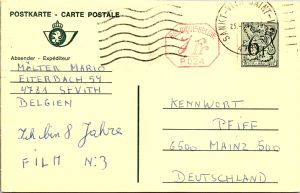 POSTKARTE - CARTE POSTALE
Absender - Expéditeur
MÖLTER MARIO
EITERBACH 54
4781 ST VITH
BELGIEN
Ich bin 8 Jahre
FILM N:3
KENNWORT
PFIFF
6500 MAINZ 500
DEUTSCHLAND
P024